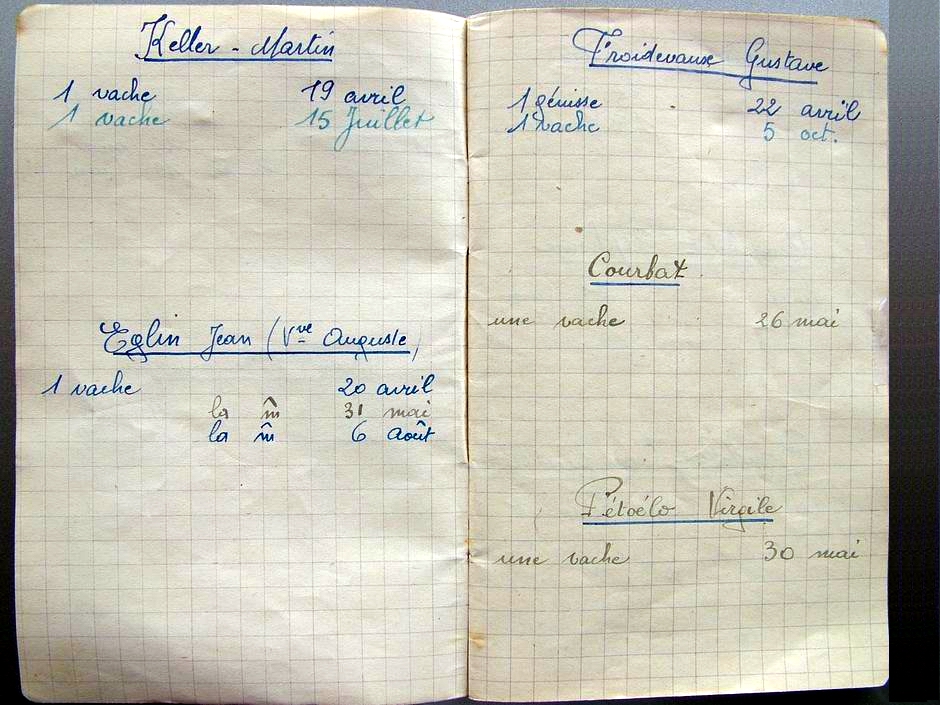 Keller - Martin
1 vache 19 avril
1 vache 15 Juillet
Eglin Jean (Vve Auguste)
1 vache 20 avril
la m̂ 31 mai
la m̂ 6 août
Froidevaux Gustave
1 génisse 22 avril
1 vache 5 oct.
Courbat
une vache 26 mai
Virgile
une vache 30 mai